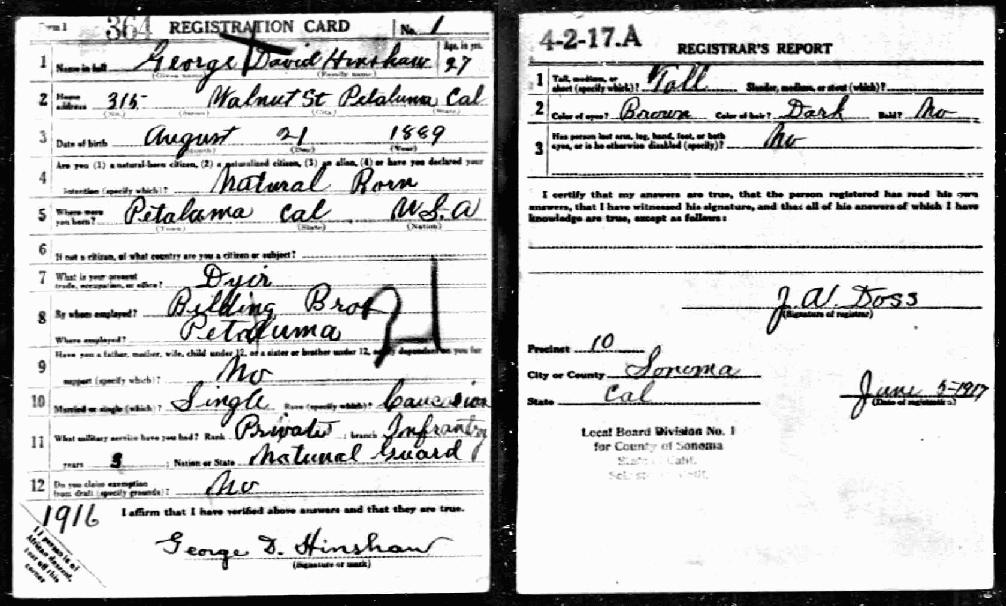 Form 1 364 REGISTRATION CARD No. 1
1 Name in full George David Hinshaw Age, in yrs. 27
(Given name) (Family name)
2 Home address 315 Walnut St Petaluma Cal
(No.) (Street) (City) (State)
3 Date of birth August 21 1889
(Month) (Day) (Year)
Are you (1) a natural-born citizen, (2) a naturalized citizen, (3) an alien, (4) or have you declared your
4 intention (specify which)? Natural Born
5 Where were you born? Petaluma Cal U.S.A
(Town) (State) (Nation)
6 If not a citizen, of what country are you a citizen or subject?
7 What is your present trade, occupation, or office? Dyir
8 By whom employed? Belding Bros
Where employed? Petaluma
21
Have you a father, mother, wife, child under 12, or a sister or brother under 12, solely dependent on you for
9 support (specify which)? No
10 Married or single (which)? Single Race (specify which)? Caucasion
11 What military service have you had? Rank Private ; branch Infantry
years 3 ; Nation or State National Guard
12 Do you claim exemption from draft (specify grounds)? No
1916 I affirm that I have verified above answers and that they are true.
George D. Hinshaw
(Signature or mark)
If person is of
African descent,
tear off this
corner
4-2-17.A REGISTRAR'S REPORT
1 Tall, medium, or short (specify which)? Tall Slender, medium, or stout (which)?
2 Color of eyes? Brown Color of hair? Dark Bald? No
3 Has person lost arm, leg, hand, foot, or both eyes, or is he otherwise disabled (specify)? No
I certify that my answers are true, that the person registered has read his own
answers, that I have witnessed his signature, and that all of his answers of which I have
knowledge are true, except as follows:
J. W. Doss
(Signature of registrar)
Precinct 10
City or County Sonoma
State Cal June 5-1917
(Date of registration)
Local Board Division No. 1
for County of Sonoma
State of Calif.